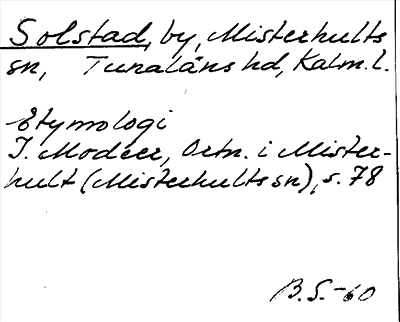 Solstad, by, Misterhults
sn, Tunaläns hd, Kalm. l.
Etymologi
I. Modéer, Ortn. i Mister-
hult (Misterhults sn), s. 78
B.S.-60